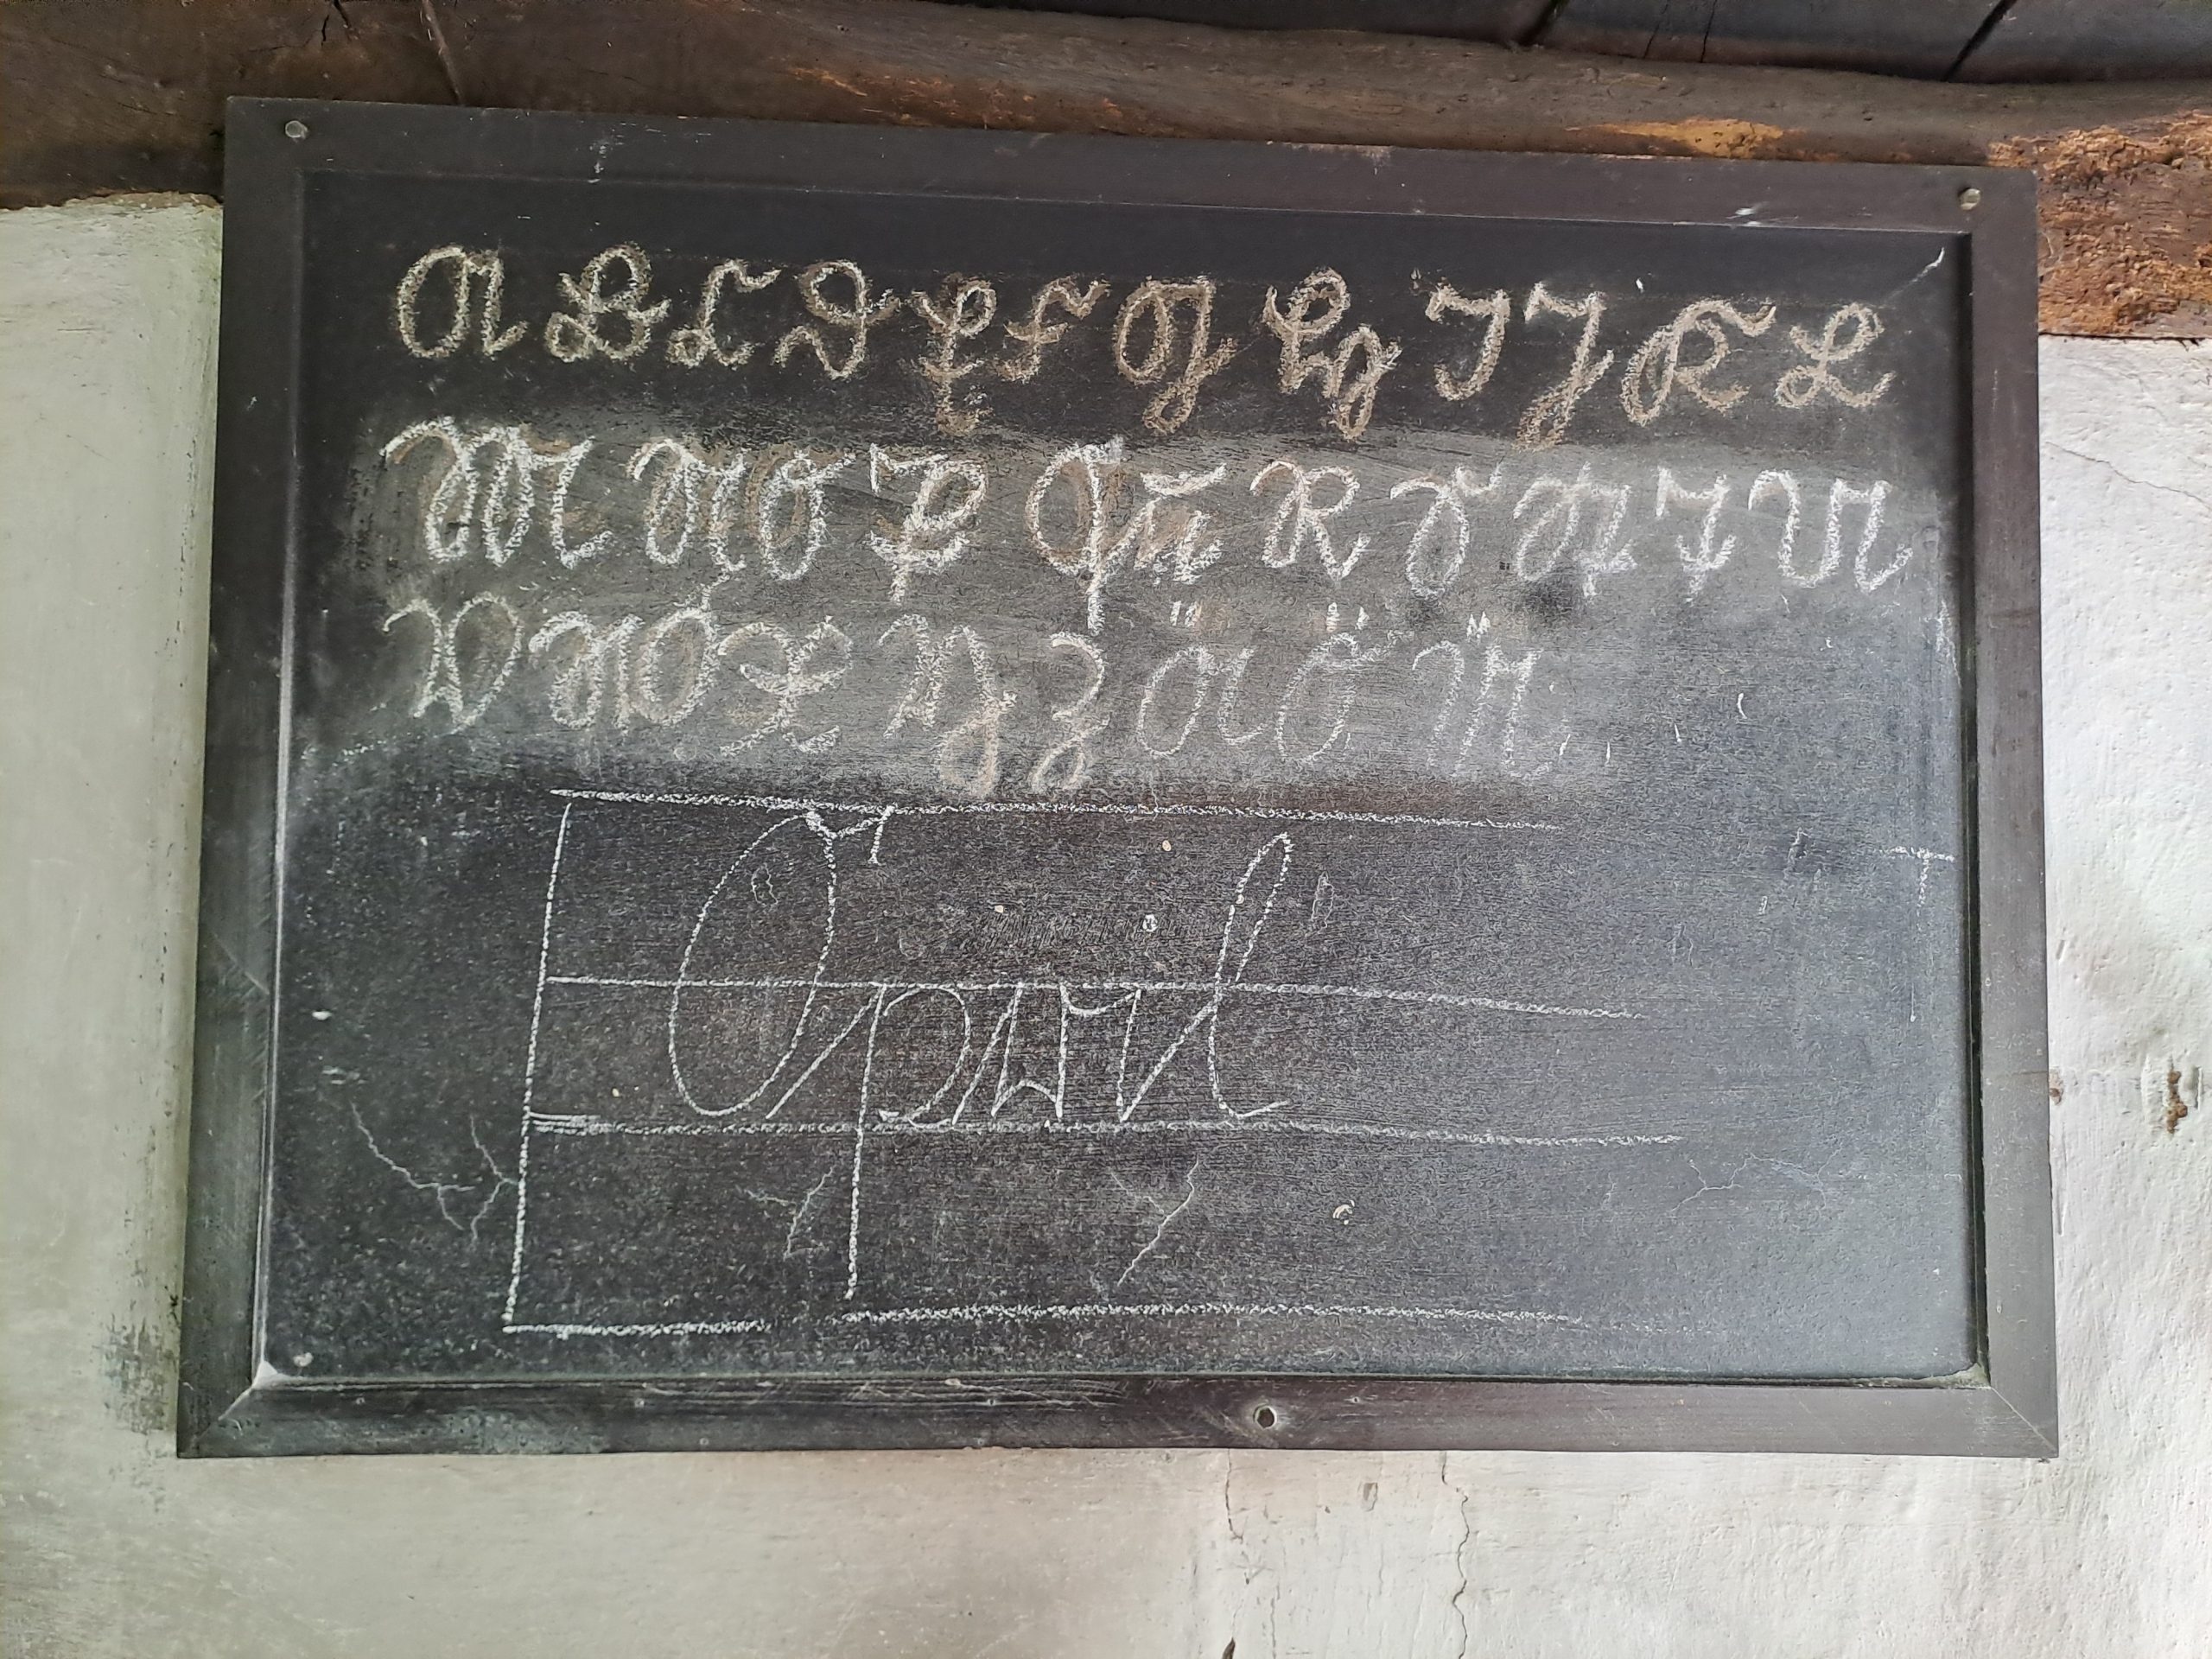 A B C D E F G H I J K L
M N O P Qu R S St T U
V W X Y Z Ä Ö Ü
Opril